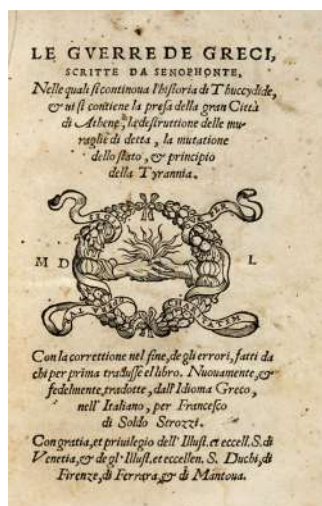 LE GVERRE DE GRECI,
SCRITTE DA SENOPHONTE,
Nelle quali si continoua l'historia di Thuccydide,
& ui si contiene la presa della gran Città
di Athene, la destruttione delle mu-
raglie di detta, la mutatione
dello stato, & principio
della Tyrannia.
M D L
Con la correttione nel fine, de gli errori, fatti da
chi per prima tradusse el libro. Nuouamente, &
fedelmente, tradotte, dall'Idioma Greco,
nell'Italiano, per Francesco
di Soldo Strozzi.
Con gratia, et priuilegio dell'Illust. et eccell. S. di
Venetia, & de gl'Illust. et eccellen. S. Duchi, di
Firenze, di Ferrara, & di Mantoua.